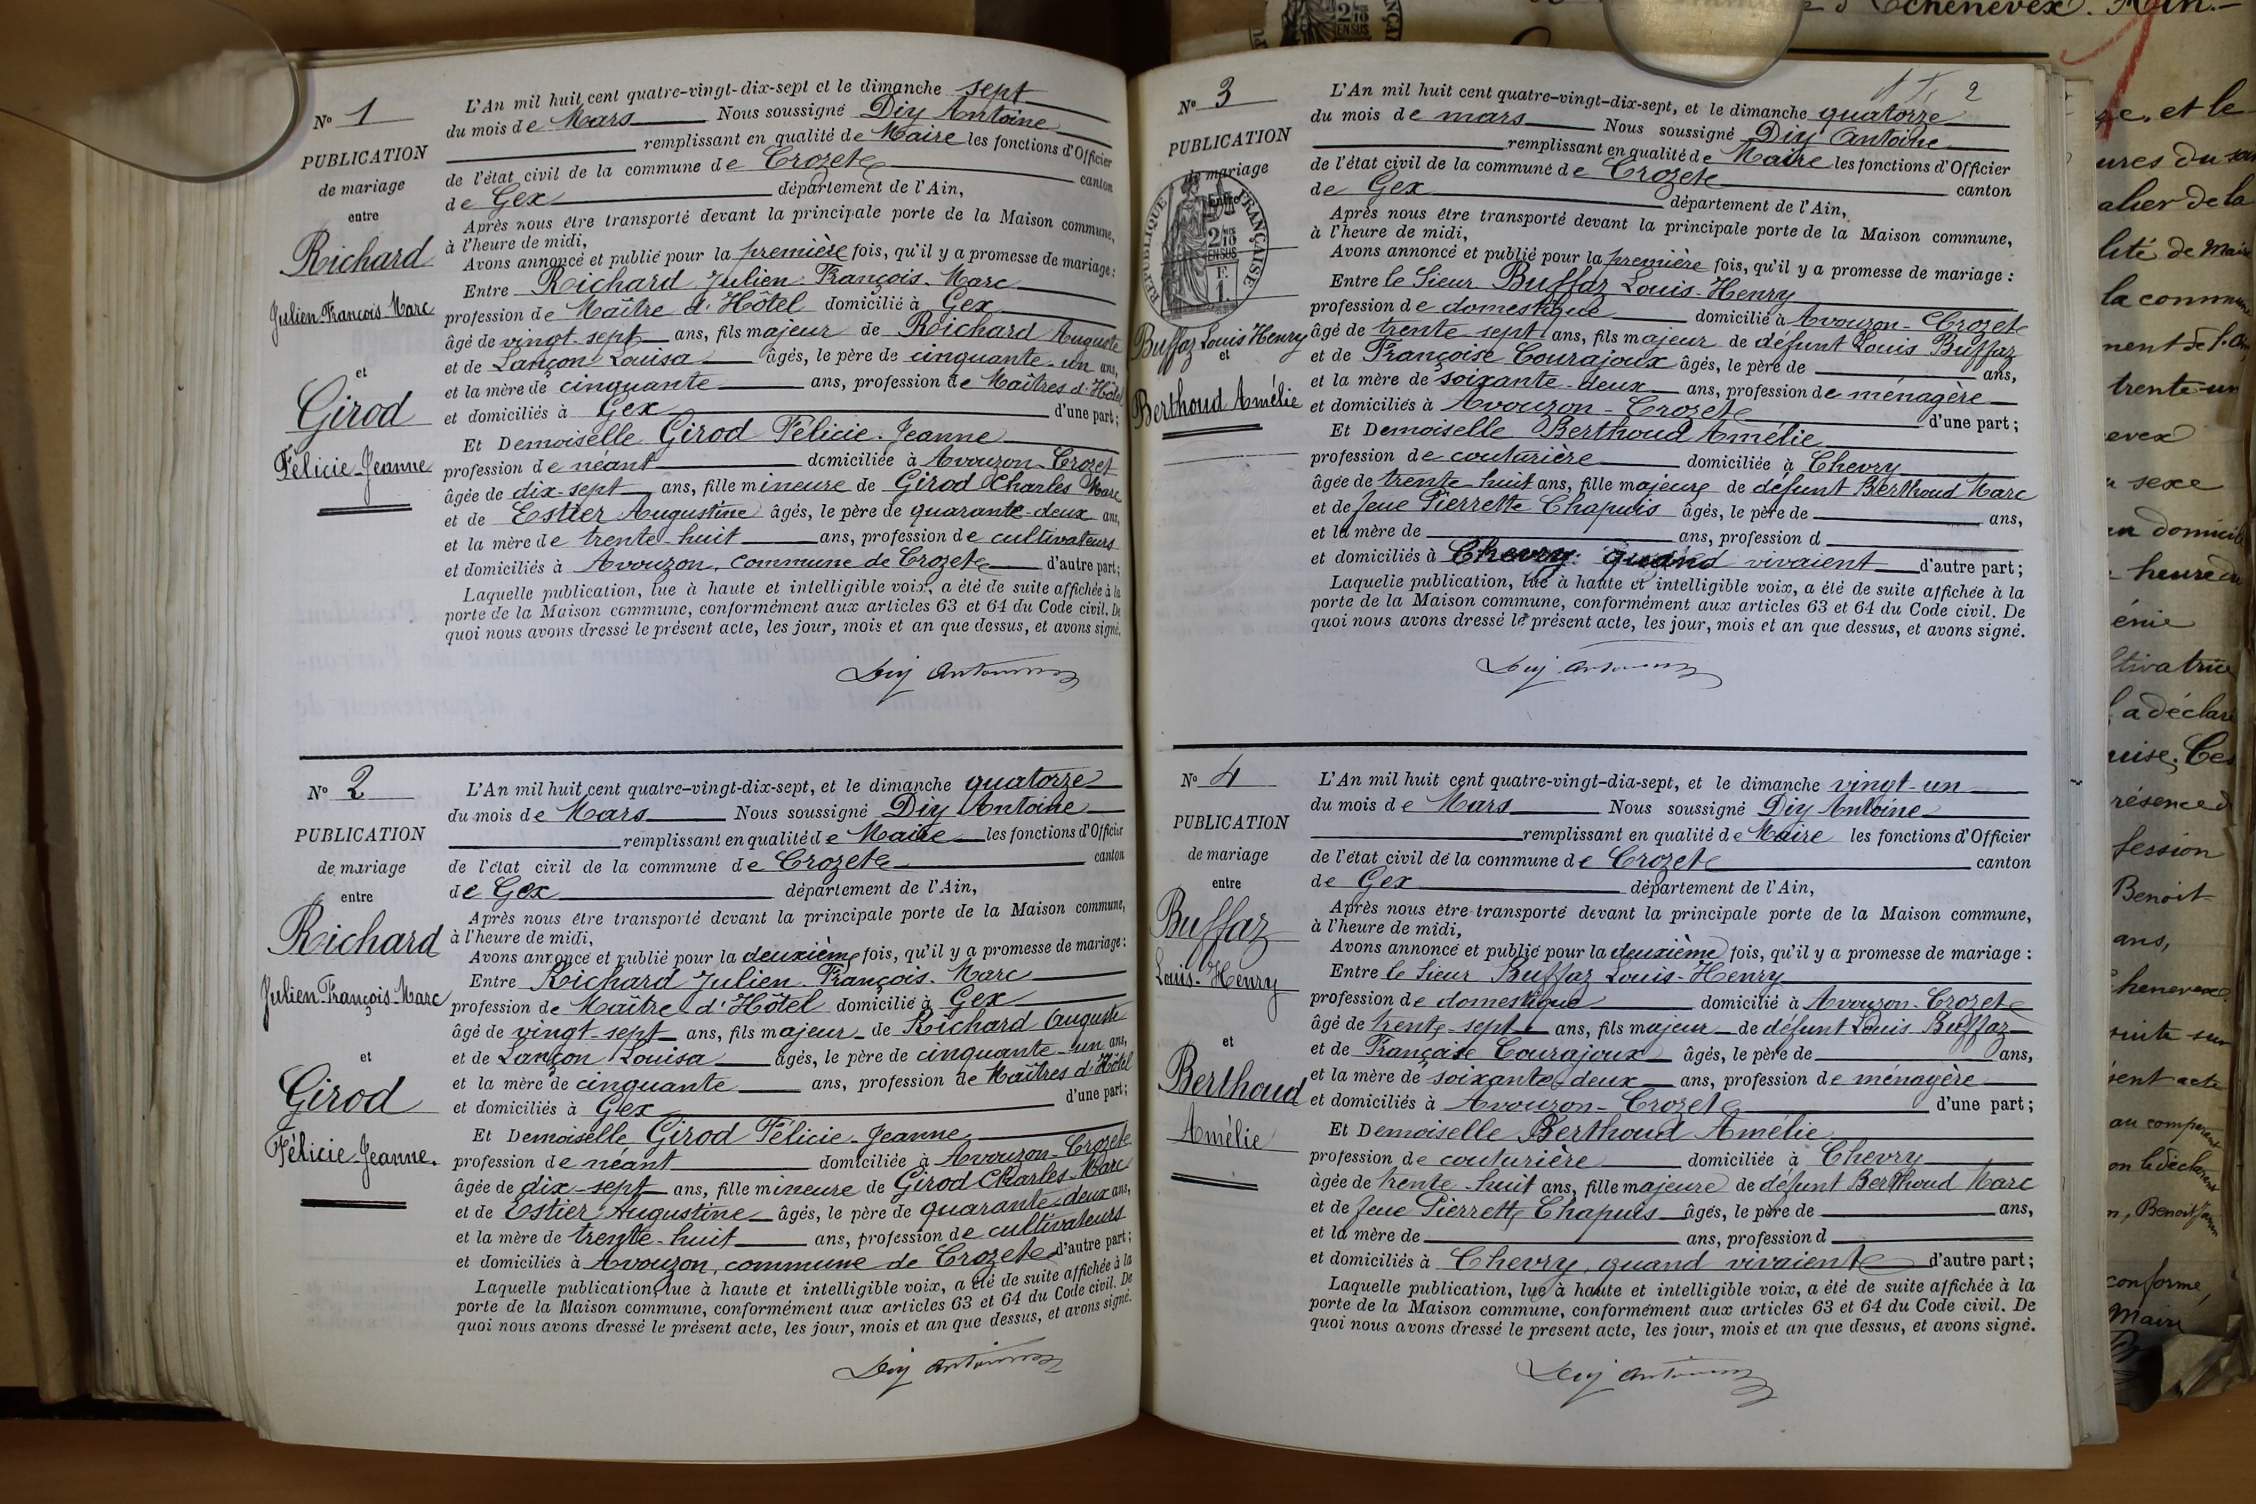 N° 1
PUBLICATION
de mariage
entre
Richard
Julien-François-Marc
et
Girod
Félicie-Jeanne
L'An mil huit cent quatre-vingt-dix-sept et le dimanche sept
du mois de Mars Nous soussigné Diy Antoine
remplissant en qualité de Maire les fonctions d'Officier
de l'état civil de la commune de Crozet canton
de Gex département de l'Ain,
Après nous être transporté devant la principale porte de la Maison commune,
à l'heure de midi,
Avons annoncé et publié pour la première fois, qu'il y a promesse de mariage :
Entre Richard Julien-François-Marc
profession de Maître d'Hôtel domicilié à Gex
âgé de vingt-sept ans, fils majeur de Richard Auguste
et de Lançon Louisa âgés, le père de cinquante-un ans,
et la mère de cinquante ans, profession de Maîtres d'Hôtel
et domiciliés à Gex d'une part ;
Et Demoiselle Girod Félicie-Jeanne
profession de néant domiciliée à Avouzon-Crozet
âgée de dix-sept ans, fille mineure de Girod Charles Marc
et de Estier Augustine âgés, le père de quarante-deux ans,
et la mère de trente-huit ans, profession de cultivateurs
et domiciliés à Avouzon, commune de Crozet d'autre part ;
Laquelle publication, lue à haute et intelligible voix, a été de suite affichée à la
porte de la Maison commune, conformément aux articles 63 et 64 du Code civil. De
quoi nous avons dressé le présent acte, les jour, mois et an que dessus, et avons signé.
Diy Antoine
N° 2
PUBLICATION
de mariage
entre
Richard
Julien-François-Marc
et
Girod
Félicie-Jeanne.
L'An mil huit cent quatre-vingt-dix-sept, et le dimanche quatorze
du mois de Mars Nous soussigné Diy Antoine
remplissant en qualité de Maire les fonctions d'Officier
de l'état civil de la commune de Crozet canton
de Gex département de l'Ain,
Après nous être transporté devant la principale porte de la Maison commune,
à l'heure de midi,
Avons annoncé et publié pour la deuxième fois, qu'il y a promesse de mariage :
Entre Richard Julien-François-Marc
profession de Maître d'Hôtel domicilié à Gex
âgé de vingt-sept ans, fils majeur de Richard Auguste
et de Lançon Louisa âgés, le père de cinquante-un ans,
et la mère de cinquante ans, profession de Maîtres d'Hôtel
et domiciliés à Gex d'une part ;
Et Demoiselle Girod Félicie-Jeanne
profession de néant domiciliée à Avouzon-Crozet
âgée de dix-sept ans, fille mineure de Girod Charles-Marc
et de Estier Augustine âgés, le père de quarante-deux ans,
et la mère de trente-huit ans, profession de cultivateurs
et domiciliés à Avouzon, commune de Crozet d'autre part ;
Laquelle publication, lue à haute et intelligible voix, a été de suite affichée à la
porte de la Maison commune, conformément aux articles 63 et 64 du Code civil. De
quoi nous avons dressé le présent acte, les jour, mois et an que dessus, et avons signé.
Diy Antoine
2
N° 3
PUBLICATION
de mariage
entre
RÉPUBLIQUE FRANÇAISE
2/10
EN SUS
Buffaz Louis Henry
et
Berthoud Amélie
L'An mil huit cent quatre-vingt-dix-sept, et le dimanche quatorze
du mois de mars Nous soussigné Diy Antoine
remplissant en qualité de Maire les fonctions d'Officier
de l'état civil de la commune de Crozet canton
de Gex département de l'Ain,
Après nous être transporté devant la principale porte de la Maison commune,
à l'heure de midi,
Avons annoncé et publié pour la première fois, qu'il y a promesse de mariage :
Entre le Sieur Buffaz Louis-Henry
profession de domestique domicilié à Avouzon-Crozet
âgé de trente sept ans, fils majeur de défunt Louis Buffaz
et de Françoise Courajoux âgés, le père de ans,
et la mère de soixante-deux ans, profession de ménagère
et domiciliés à Avouzon-Crozet d'une part ;
Et Demoiselle Berthoud Amélie
profession de couturière domiciliée à Chevry
âgée de trente huit ans, fille majeure de défunt Berthoud Marc
et de feue Pierrette Chapuis âgés, le père de ans,
et la mère de ans, profession d
et domiciliés à Chevry quand vivaient d'autre part ;
Laquelle publication, lue à haute et intelligible voix, a été de suite affichée à la
porte de la Maison commune, conformément aux articles 63 et 64 du Code civil. De
quoi nous avons dressé le présent acte, les jour, mois et an que dessus, et avons signé.
Diy Antoine
N° 4
PUBLICATION
de mariage
entre
Buffaz
Louis-Henry
et
Berthoud
Amélie
L'An mil huit cent quatre-vingt-dia-sept, et le dimanche vingt-un
du mois de Mars Nous soussigné Diy Antoine
remplissant en qualité de Maire les fonctions d'Officier
de l'état civil de la commune de Crozet canton
de Gex département de l'Ain,
Après nous être transporté devant la principale porte de la Maison commune,
à l'heure de midi,
Avons annoncé et publié pour la deuxième fois, qu'il y a promesse de mariage :
Entre le Sieur Buffaz Louis-Henry
profession de domestique domicilié à Avouzon-Crozet
âgé de trente-sept ans, fils majeur de défunt Louis Buffaz
et de Française Courajoux âgés, le père de ans,
et la mère de soixante-deux ans, profession de ménagère
et domiciliés à Avouzon-Crozet d'une part ;
Et Demoiselle Berthoud Amélie
profession de couturière domiciliée à Chevry
âgée de trente-huit ans, fille majeure de défunt Berthoud Marc
et de feue Pierrette Chapuis âgés, le père de ans,
et la mère de ans, profession d
et domiciliés à Chevry, quand vivaient d'autre part ;
Laquelle publication, lue à haute et intelligible voix, a été de suite affichée à la
porte de la Maison commune, conformément aux articles 63 et 64 du Code civil. De
quoi nous avons dressé le présent acte, les jour, mois et an que dessus, et avons signé.
Diy Antoine
d'Echenevex. Ain.
et le
alier de la
lité de Maire
la commune
trente-un
sexe
domicile
heure du
a déclaré
Benoit
ans,
conforme,
Maire